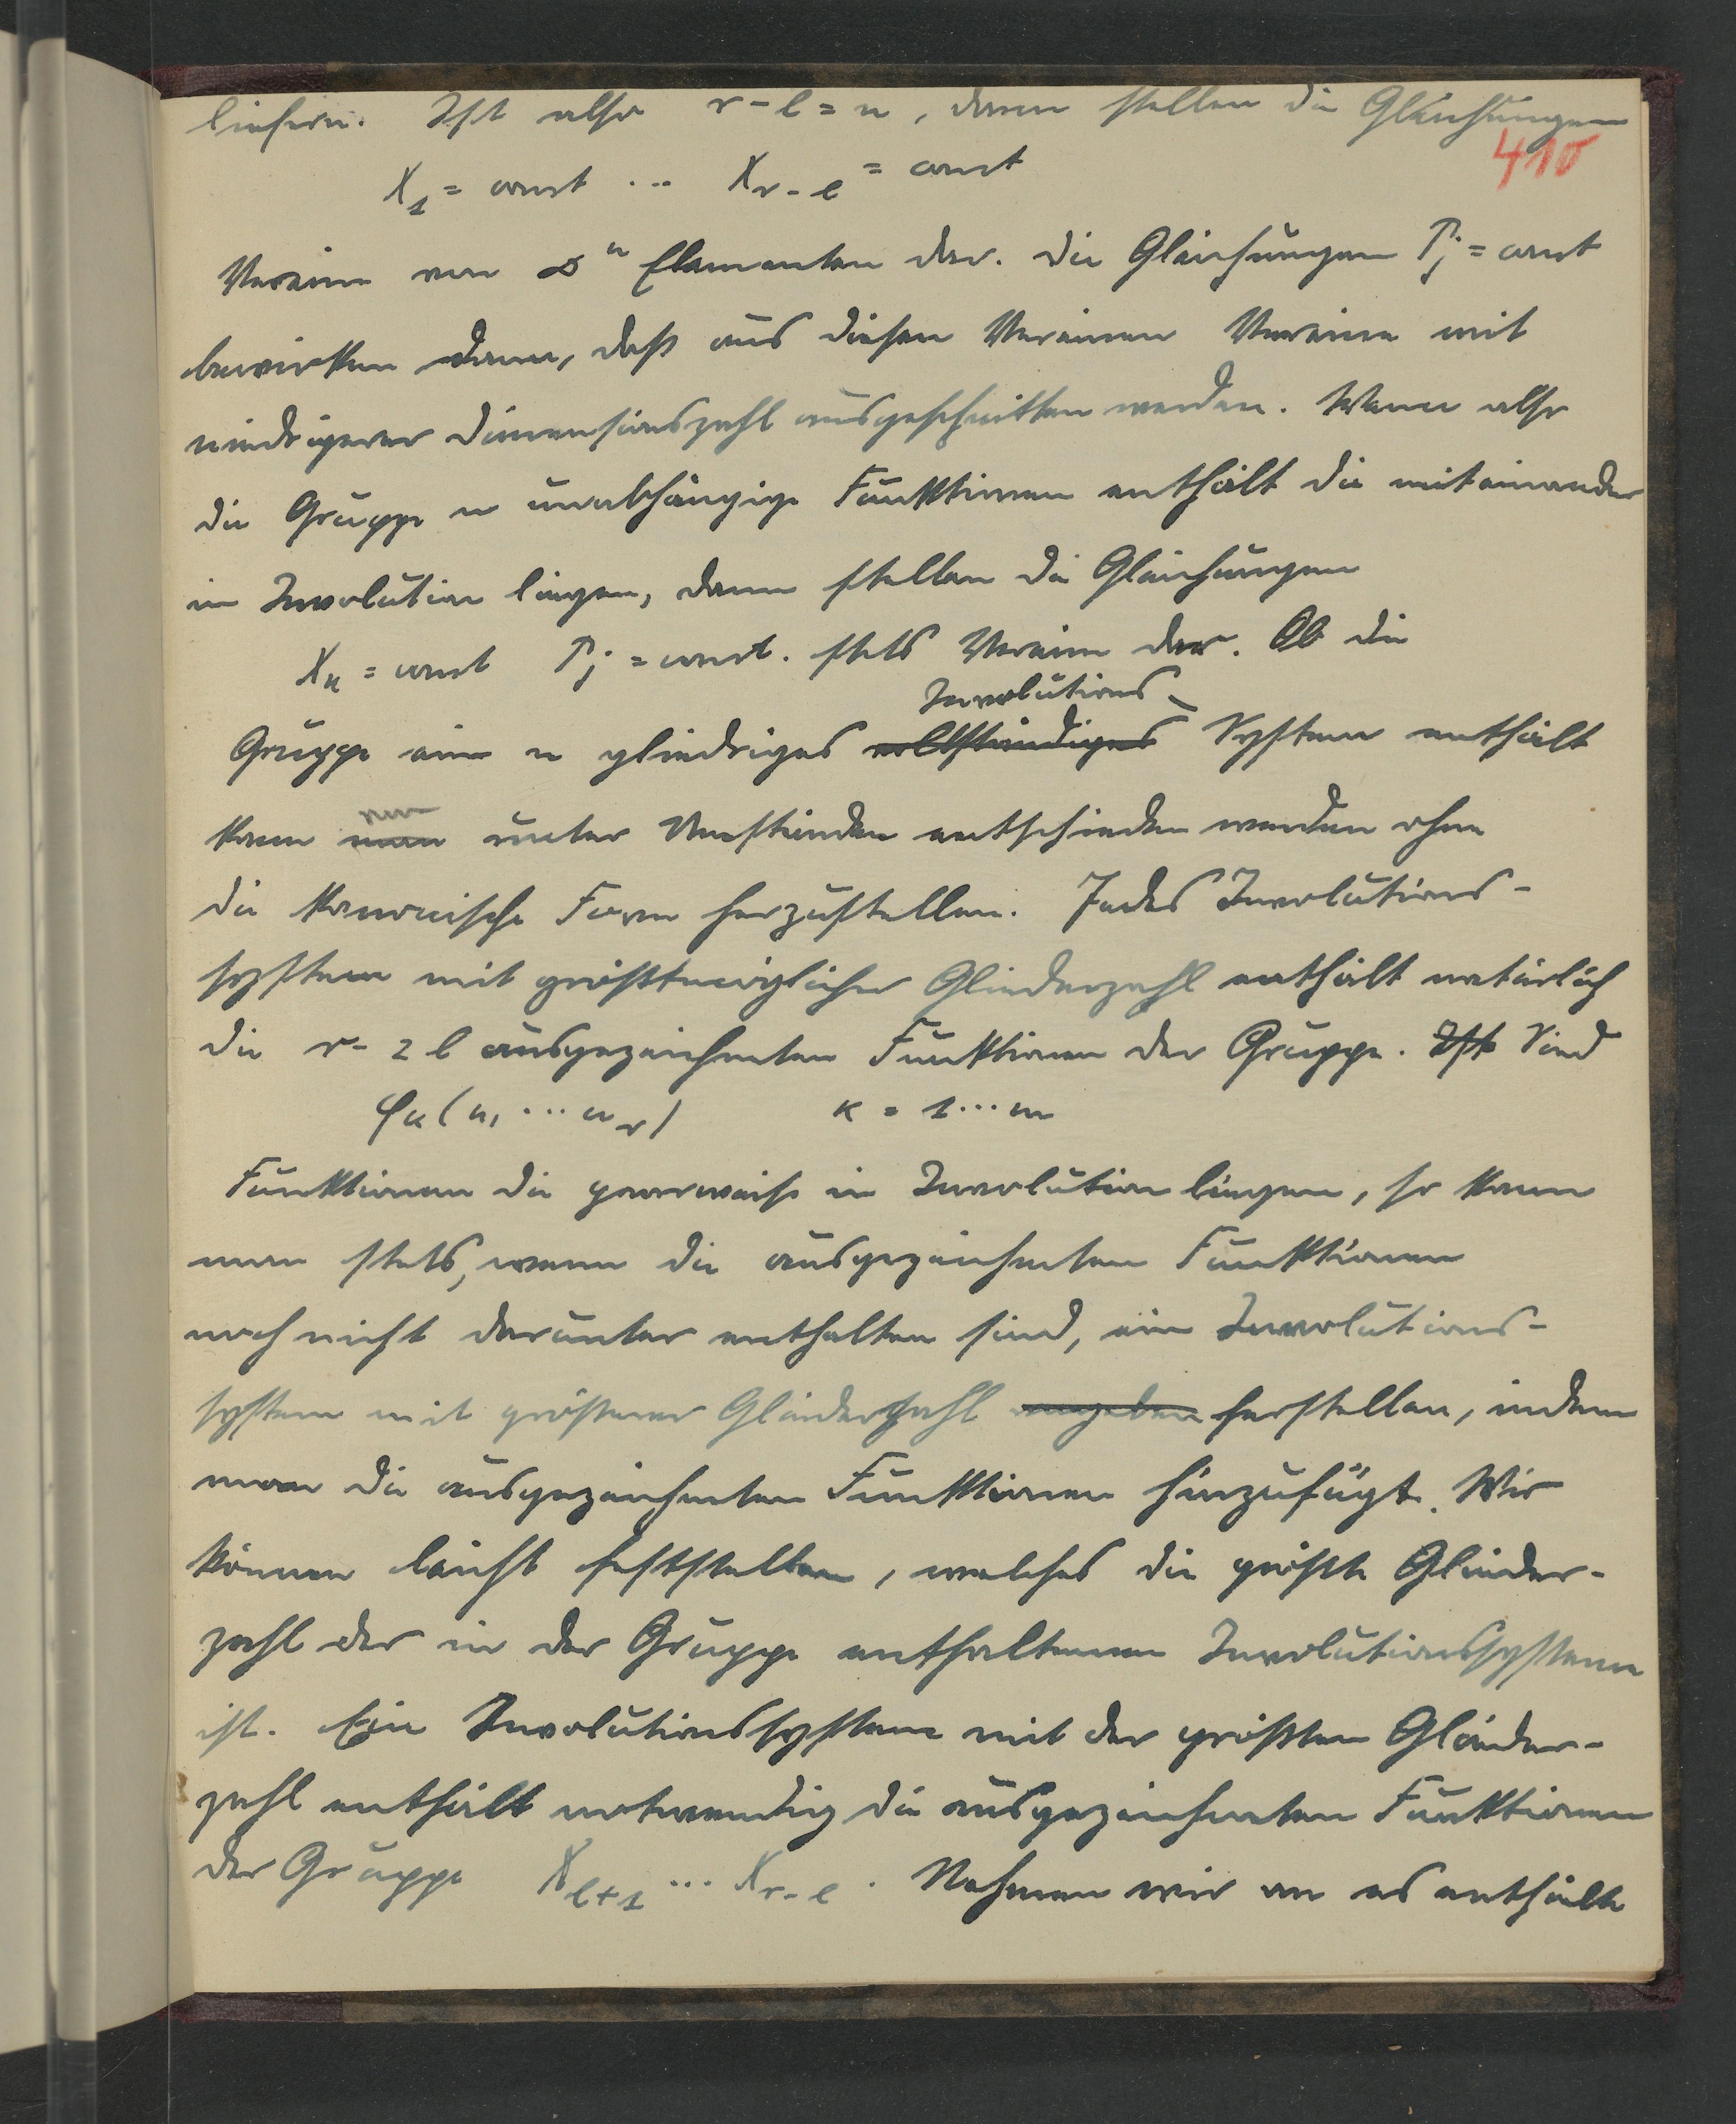 liefern. Ist also r-l=n, dann stellen die Gleichungen
410
X₁ = const ... X_{r-l} = const
Vereine von ∞ⁿ Elementen dar. die Gleichungen P_j = const
bewirken dann, daß aus diesen Vereinen Vereine mit
niedrigerer Dimensionszahl ausgeschnitten werden. Wenn also
die Gruppe n unabhängige Funktionen enthält die miteinander
in Involution liegen, dann stellen die Gleichungen
X_κ = const P_j = const. stets Vereine dar. Ob die
Involutions-
Gruppe ein n gliedriges vollständiges System enthält
nun
kann man unter Umständen entschieden werden ohne
die kanonische Form herzustellen. Jedes Involutions-
system mit größtmöglicher Gliederzahl enthält natürlich
die r-2l ausgezeichneten Funktionen der Gruppe. Ist Sind
φ_κ(u₁ ... u_r) κ = 1...m
Funktionen die paarweise in Involution liegen, so kann
man stets, wenn die ausgezeichneten Funktionen
noch nicht darunter enthalten sind, ein Involutions-
system mit größerer Gliederzahl angeben herstellen, indem
man die ausgezeichneten Funktionen hinzufügt. Wir
können leicht feststellen, welches die größte Glieder-
zahl der in der Gruppe enthaltenen Involutionssysteme
ist. Ein Involutionssystem mit der größten Glieder-
zahl enthält notwendig die ausgezeichneten Funktionen
der Gruppe X_{l+1} ... X_{r-l}. Nehmen wir an es enthielte